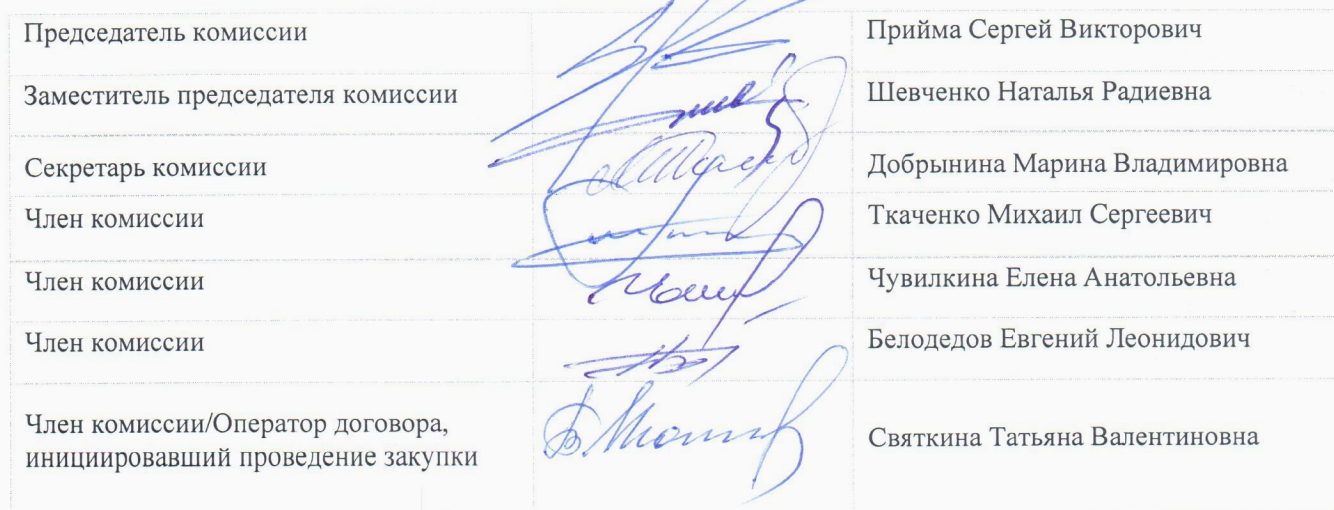 Председатель комиссии Прийма Сергей Викторович
Заместитель председателя комиссии Шевченко Наталья Радиевна
Секретарь комиссии Добрынина Марина Владимировна
Член комиссии Ткаченко Михаил Сергеевич
Член комиссии Чувилкина Елена Анатольевна
Член комиссии Белодедов Евгений Леонидович
Член комиссии/Оператор договора,
инициировавший проведение закупки Святкина Татьяна Валентиновна